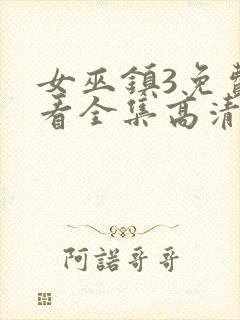 女巫鎮3免費
看全集高清
阿諾哥哥